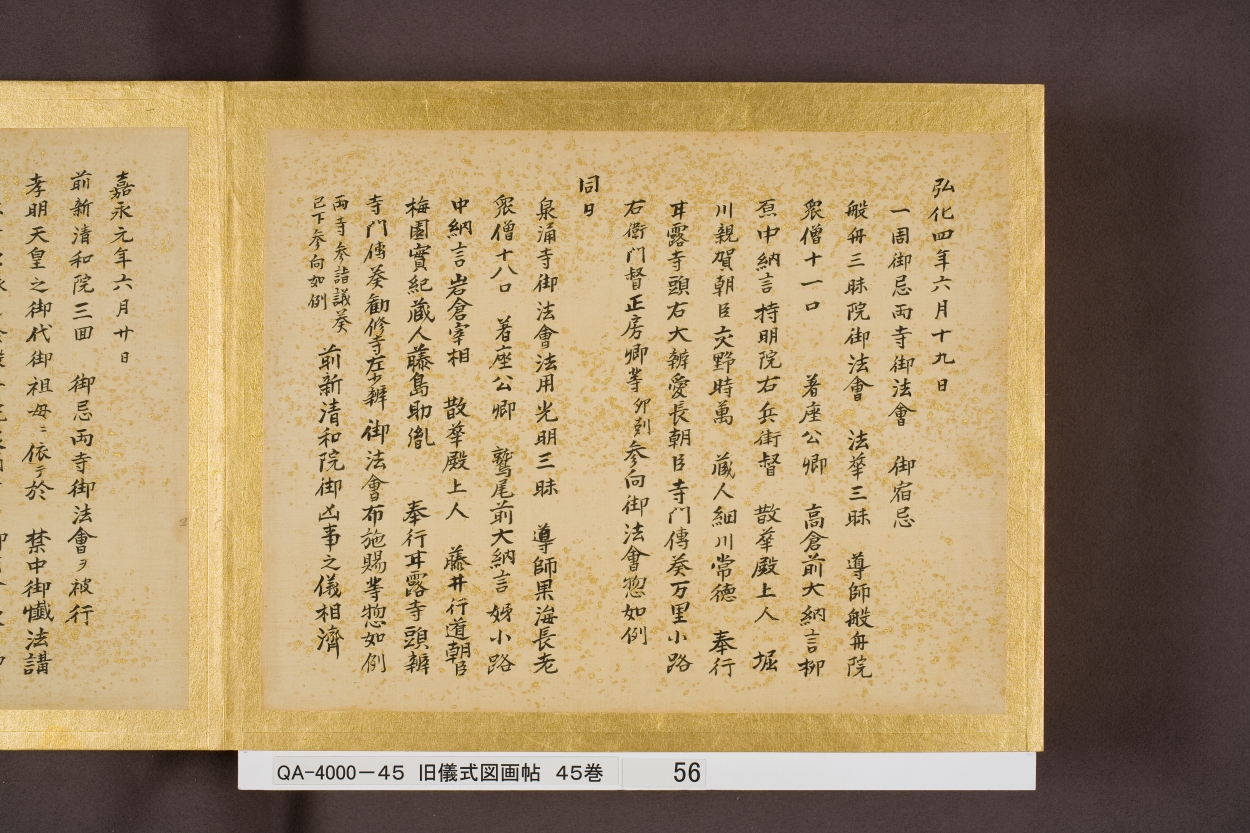 弘化四年六月十九日
一周御忌両寺御法會　御宿忌
般舟三昧院御法會　法華三昧　導師般舟院
衆僧十一口　著座公卿　高倉前大納言柳
原中納言持明院右兵衛督　散華殿上人　堀
川親賀朝臣交野時萬　蔵人細川常徳　奉行
甘露寺頭右大辨愛長朝臣寺門傳葵万里小路
右衛門督正房卿等卯刻参向御法會惣如例
同日
泉涌寺御法會法用光明三昧　導師果海長老
衆僧十八口　著座公卿　鷲尾前大納言姊小路
中納言岩倉宰相　散華殿上人　藤井行道朝臣
梅園實紀蔵人藤島助胤　奉行甘露寺頭辨
寺門傳葵勧修寺左少辨御法會布施賜等惣如例
両寺参詣議葵
已下参向如例
前新清和院御凶事之儀相濟
嘉永元年六月廿日
前新清和院三回　御忌両寺御法會ヲ被行
孝明天皇之御代御祖母ニ依テ於　禁中御懺法講
QA-4000-45　旧儀式図画帖　45巻　56